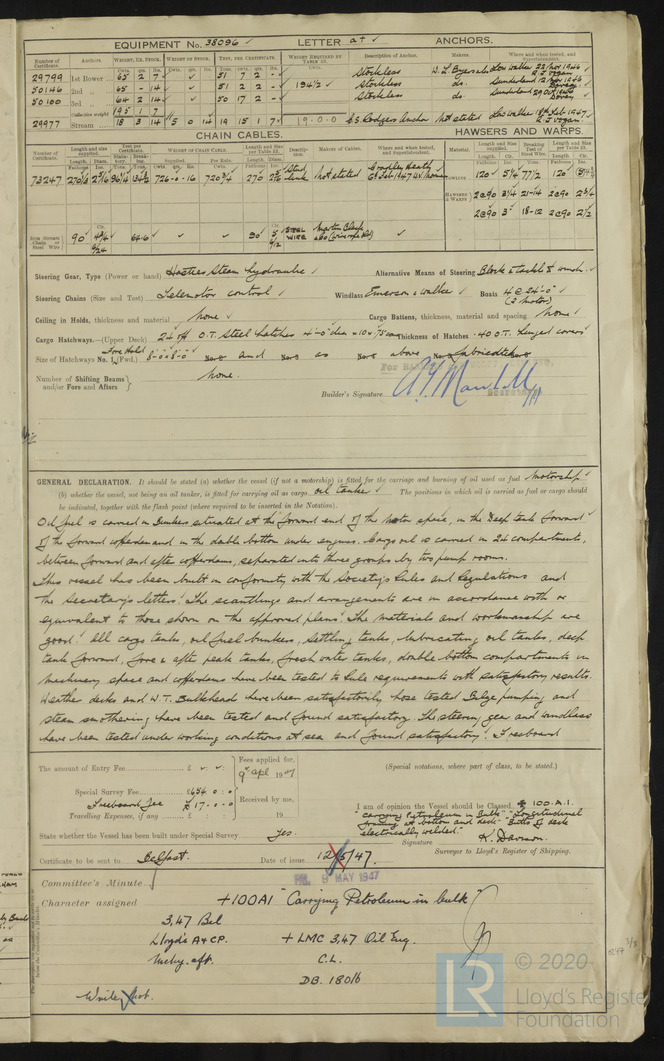 EQUIPMENT No. 38096 ✓ LETTER a+ ✓ ANCHORS.
Number of Certificate. Anchors. WEIGHT, EX. STOCK. WEIGHT OF STOCK. TEST, PER CERTIFICATE. WEIGHT REQUIRED BY TABLE 22. Description of Anchor. Makers. Where and when tested, and Superintendent.
29799 1st Bower 65 2 7 51 7 2 - Stockless W. L. Byers & Co Low Walker 22 Nov 1946
50146 2nd " 65 - 14 51 2 2 - 194½ ✓ Stockless do. Sunderland 12 Nov 1946
50100 3rd " 64 2 14 50 17 2 - Stockless do. Sunderland 29 Oct 1946
Collective weight 195 1 7
29977 Stream 18 3 14 5 0 14 19 15 1 7 19.0.0 C.S. Rodgers Anchor Not stated Low Walker 18th Feb 1947
CHAIN CABLES. HAWSERS AND WARPS.
Number of Certificate. Length and size supplied. Test per Certificate. WEIGHT OF CHAIN CABLE. Length and Size per Table 22. Description. Makers of Cables. Where and when tested, and Superintendent. Material. Length and Size supplied. Breaking Test of Steel Wire. Length and Size per Table 22.
73247 726-0-16 720¾ 270 Stud link Not stated Cradley Heath
TOWLINE 120 ✓ 5¼ 77½ 120
HAWSERS & WARPS 2@90 3¼ 21-14 2@90 2¾
2@90 3" 18-12 2@90 2½
Iron Stream Chain or Steel Wire 90 64.6 ✓ ✓ 90 STEEL WIRE Martin Black & Co (Wire ropes Ltd) ✓
Steering Gear, Type (Power or hand) Hasties Steam hydraulic ✓ Alternative Means of Steering Block & tackle & winch ✓
Steering Chains (Size and Test) Telemotor control ✓ Windlass Emerson & Walker ✓ Boats 4 @ 24'-0" ✓
(2 motor)
Ceiling in Holds, thickness and material None ✓ Cargo Battens, thickness, material and spacing None ✓
Cargo Hatchways.—(Upper Deck) 24 off O.T. Steel hatches 4'-0" dia Thickness of Hatches .40 O.T. hinged covers
Size of Hatchways No. 1 (Fwd.) Fore Hold 8'-0" x 8'-0" No. 2 and No. 3 as No. 4 above No. 5 fabricated
Number of Shifting Beams and/or Fore and Afters } None.
Builder's Signature
Secretary
GENERAL DECLARATION. It should be stated (a) whether the vessel (if not a motorship) is fitted for the carriage and burning of oil used as fuel Motorship ✓
(b) whether the vessel, not being an oil tanker, is fitted for carrying oil as cargo oil tanker ✓ The positions in which oil is carried as fuel or cargo should
be indicated, together with the flash point (where required to be inserted in the Notation).
Oil fuel is carried in Bunkers situated at the forward end of the motor space, in the Deep tank forward
of the forward cofferdam and in the double bottom under engines. Cargo oil is carried in 24 compartments,
between forward and after cofferdams, separated into three groups by two pump rooms.
This vessel has been built in conformity with the Society's Rules and Regulations and
the Secretary's letters. The scantlings and arrangements are in accordance with or
equivalent to those shown on the approved plans. The materials and workmanship are
good. All cargo tanks, oil fuel bunkers, settling tanks, lubricating oil tanks, deep
tank forward, fore & after peak tanks, fresh water tanks, double bottom compartments in
machinery space and cofferdams have been tested to Rule requirements with satisfactory results.
Weather decks and W.T. Bulkhead have been satisfactorily hose tested. Bilge pumping and
steam smothering have been tested and found satisfactory. The steering gear and windlass
have been tested under working conditions at sea and found satisfactory. Freeboard
The amount of Entry Fee £ ✓ ✓ Fees applied for,
9th Apl 1947
(Special notations, where part of class, to be stated.)
Special Survey Fee £654 : 0 : 0
Freeboard fee £17 - 0 - 0 Received by me,
Travelling Expenses, if any £ : : 19
I am of opinion the Vessel should be Classed ✠ 100.A.1.
"carrying petroleum in Bulk" "Longitudinal
framing at bottom and deck" "Butts of deck
electrically welded."
State whether the Vessel has been built under Special Survey Yes.
Signature K. Davison
Surveyor to Lloyd's Register of Shipping.
Certificate to be sent to Belfast. Date of issue 12/5/47.
FRI. 9 MAY 1947
Committee's Minute
Character assigned +100A1 "Carrying Petroleum in bulk"
3,47 Bel
Lloyd's A & CP. + LMC 3,47 Oil Eng.
Mchy. aft. C.L.
DB. 180lb
LR © 2020
Lloyd's Register
Foundation